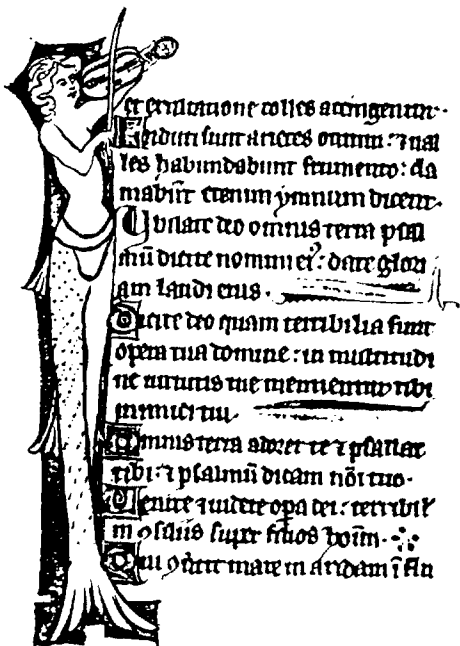 et exultatione colles accingentur.
Induti sunt arietes ouium: ⁊ ual
les habundabunt frumento: cla
mabūt etenim ymnum dicent.
Ubilate deo omnis terra psal
mū dicite nomini eiꝰ: date glori
am laudi eius.
Dicite deo quam terribilia sunt
opera tua domine: in multitudi
ne uirtutis tue mentientur tibi
inimici tui.
Omnis terra adoret te ⁊ psallat
tibi: ⁊ psalmū dicam nōi tuo.
Uenite ⁊ uidete opa dei: terribil'
in ꝯsiliis super filios hoīm.
Qui ꝯuertit mare in aridam ī flu